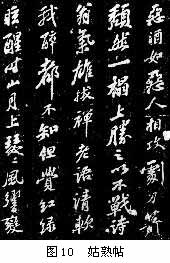 惡酒如惡人相攻劇刀箭
頹然一榻上勝之以不戰詩
翁氣雄拔禪老語清軟
我醉都不知但覺紅綠
眩醒時月風響變
图10 姑熟帖